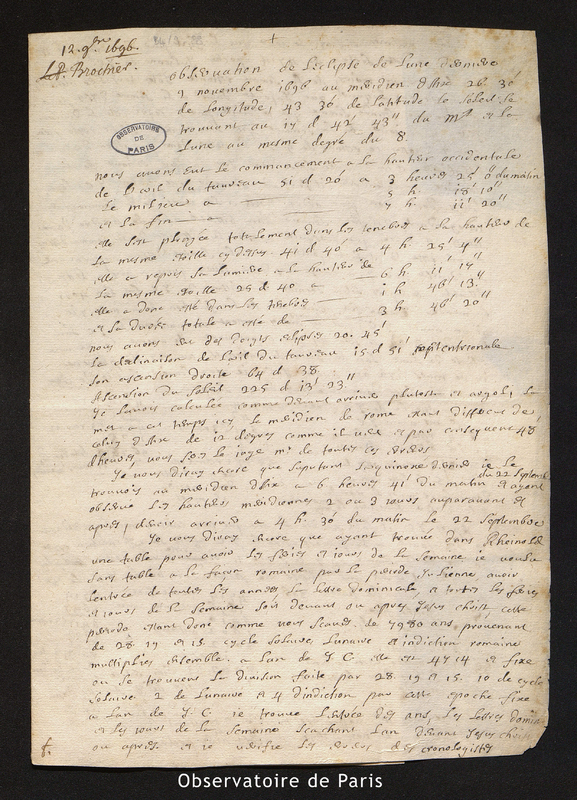 12. 9bre 1696.
Le P. Brochier.
observation de leclipse de Lune derniere
9 novembre 1696 au meridien d'Aix 26. 30'
de Longitude, 43 30' de latitude le soleil se
trouvant au 17 d 42' 43" du et la
Lune au mesme degré du 8.
OBSERVATOIRE DE PARIS
nous avons eut le commancement a la hauteur occidentale
de l'oeil du taureau 51 d 20' a 3 heures 25' 0" du matin
le milieu a 5 h 18' 10"
et la fin a 7 h 11' 20"
elle s'est plongée totalement dans les tenebres a la hauteur de
la mesme etoille cy dessus 41 d 40' a 4 h. 25' 4"
elle a repris sa lumiere a la hauteur de
la mesme etoille 25 d 40' a 6 h 11' 17"
elle a donc esté dans les tenebres 1 h 46' 13"
et sa durée totale a esté de 3 h 46' 20"
nous avons eu des doigts eclipsés 20. 45'
la declinaison de l'oeil du taureau 15 d 51' septentrionale
son ascension droite 64 d 38
Ascension du soleil 225 d 13' 23"
Je l'avois calculée comme devant arriver plutost et argoli, la
met a ce temps icy le meridien de rome estant different de
celuy d'Aix de 12 degres comme il met et par consequent 48'
d'heures, vous serez le juge de toutes ces
Je vous diray encore que suputant l'equinoxe dernier je le
du 22 septembre
trouvois au meridien d'Aix a 6 heures 41' du matin et ayant
observé les hauteurs meridiennes 2 ou 3 jours auparavant et
apres, devoir arriver a 4 h. 30' du matin le 22 septembre
Je vous diray encore que ayant trouvé dans Rheinold
une table pour avoir les feries et jours de la semaine je voulu
sans table a la façon romaine par la periode Julienne avoir
l'entrée de toutes les années la lettre dominicale et toutes les feries
et jours de la semaine soit devant ou apres Jesus christ cette
periode estant donc comme vous scavez de 7980 ans provenant
de 28. 19 et 15 cycle solaire lunaire et indiction romaine
multiplies ensemble. a lan de J C elle est 4714 et fixe
ou se trouvera la division faite par 28. 19 et 15. 10 de cycle
solaire 2 de lunaire et 4 dindiction par cette epoche fixe
a lan de J. C je trouve l'entrée des ans, les lettres domin
et les jours de la semaine scachant lan devant Jesus christ
ou apres et je verifie les des cronologistes